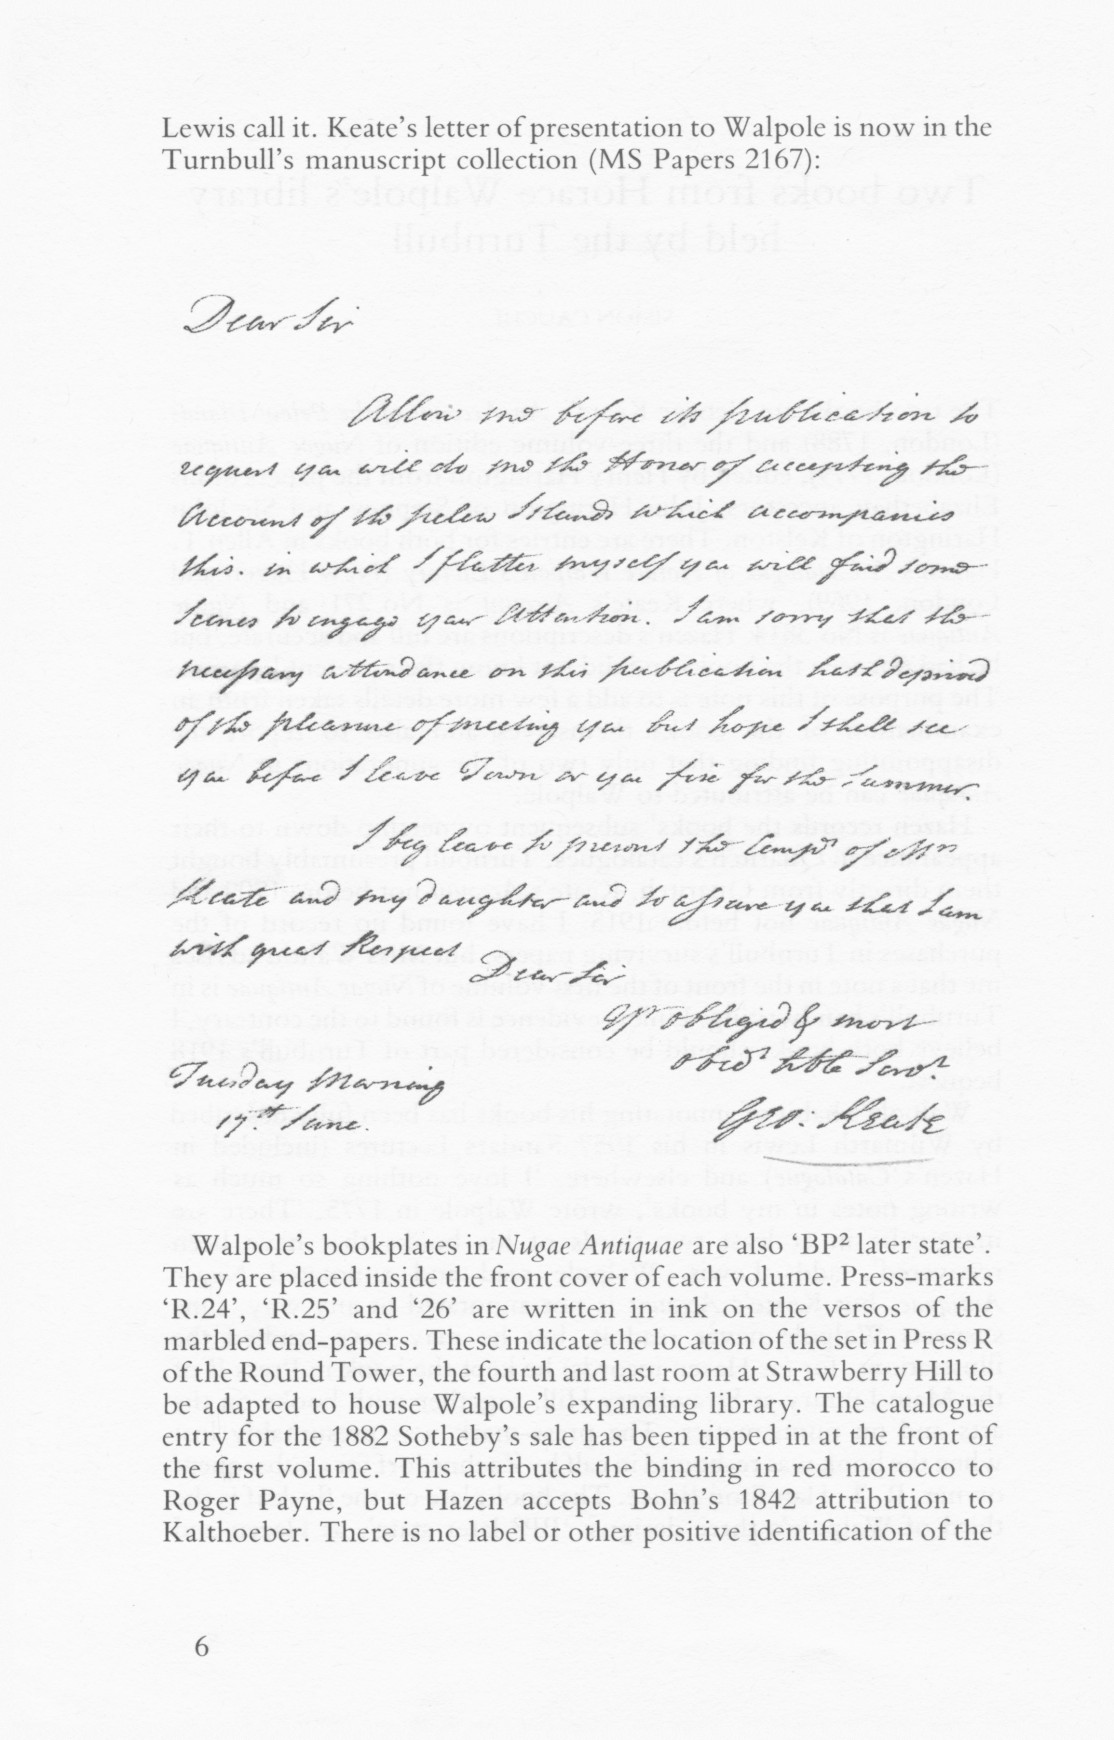 Lewis call it. Keate's letter of presentation to Walpole is now in the
Turnbull's manuscript collection (MS Papers 2167):
Dear Sir
Allow me before its publication to
request you will do me the Honor of accepting the
Account of the pelew Islands which accompanies
this. in which I flatter myself you will find some
Scenes to engage your Attention. I am sorry that the
necessary attendance on this publication hath deprived
of the pleasure of meeting you but hope I shall see
you before I leave Town or you fix for the Summer.
I beg leave to present the Comp.ts of Mrs
Keate and my daughter and to assure you that I am
with great Respect
Dear Sir
Yr obligid & most
obed.t hble Serv.t
Geo: Keate
Tuesday Morning
17.th June.
Walpole's bookplates in Nugae Antiquae are also 'BP² later state'.
They are placed inside the front cover of each volume. Press-marks
'R.24', 'R.25' and '26' are written in ink on the versos of the
marbled end-papers. These indicate the location of the set in Press R
of the Round Tower, the fourth and last room at Strawberry Hill to
be adapted to house Walpole's expanding library. The catalogue
entry for the 1882 Sotheby's sale has been tipped in at the front of
the first volume. This attributes the binding in red morocco to
Roger Payne, but Hazen accepts Bohn's 1842 attribution to
Kalthoeber. There is no label or other positive identification of the
6